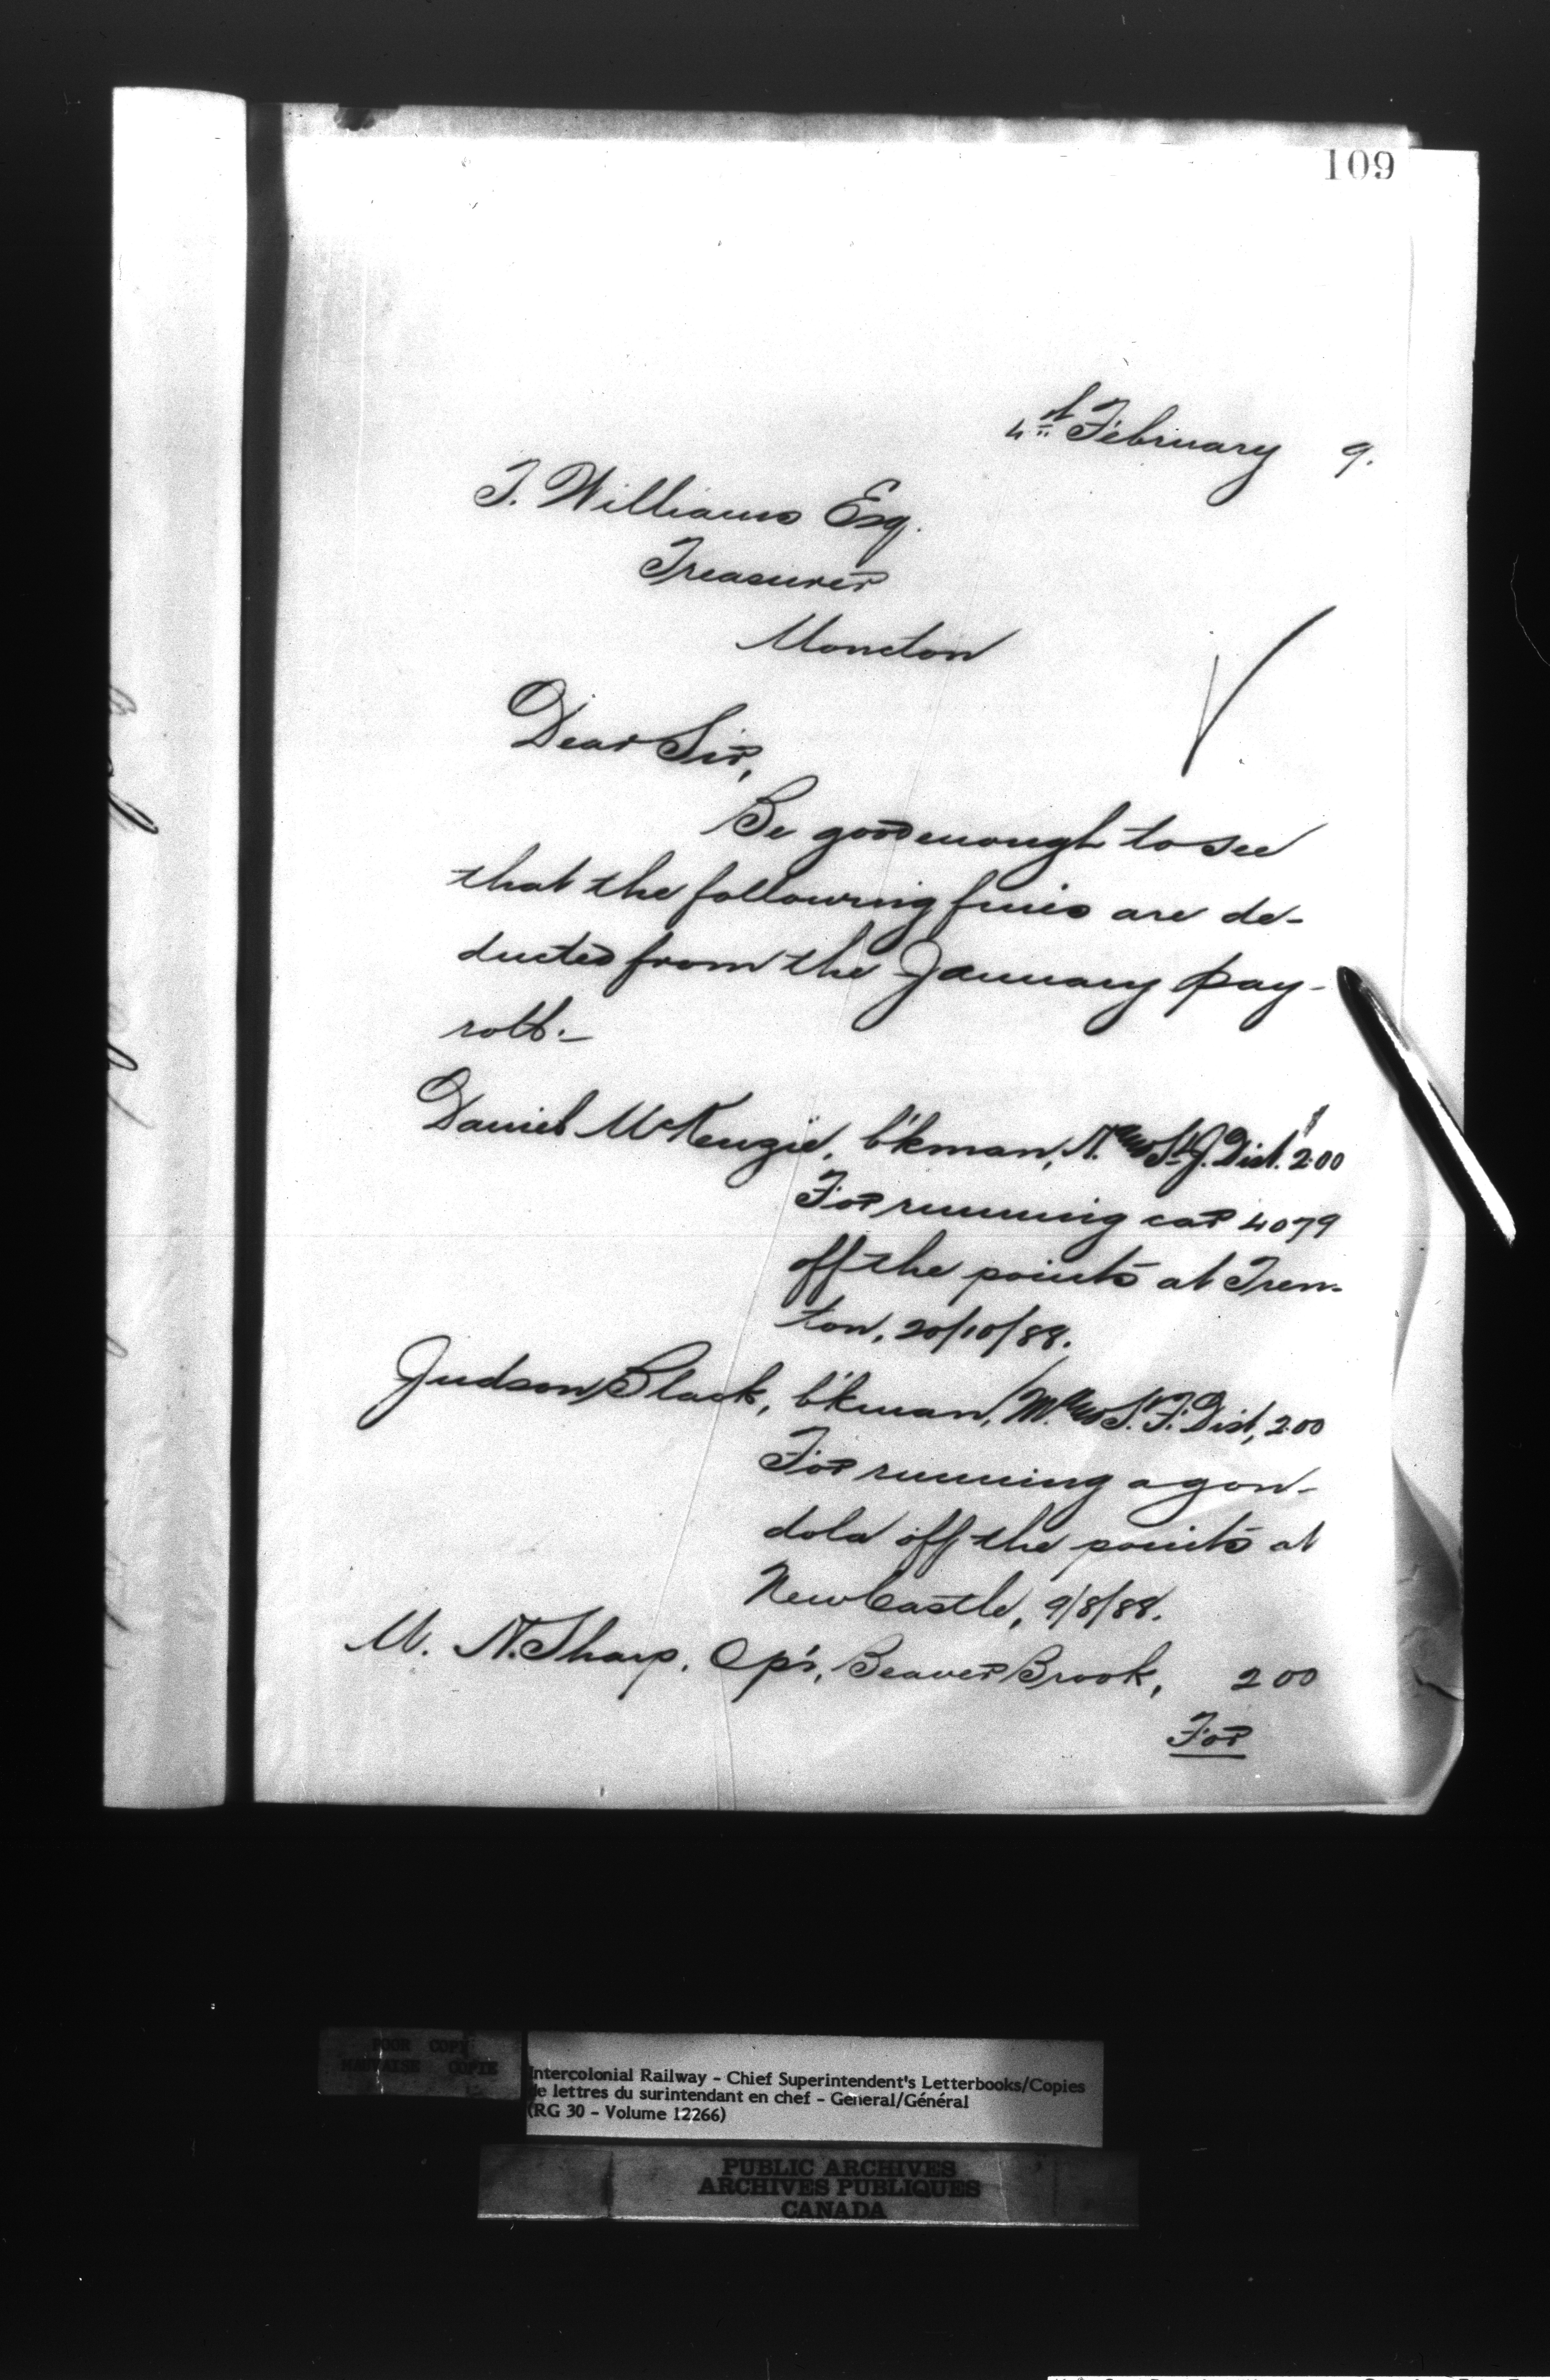 109
4th February 9.
T. Williams Esq.
Treasurer
Moncton
Dear Sir,
Be good enough to see
that the following fines are de-
ducted from the January pay-
roll:-
Daniel McKenzie, b'kman, N. and St. J. Dist. $2.00
For running car 4079
off the points at Tren-
ton, 20/10/88.
Judson Black, b'kman, M. and S. F. Dist, 2.00
For running a gon-
dola off the points at
NewCastle, 9/8/88.
M. N. Sharp, Op'r, Beaver Brook, 2 00
For
POOR COPY
MAUVAISE COPIE
Intercolonial Railway - Chief Superintendent's Letterbooks/Copies
de lettres du surintendant en chef - General/Général
(RG 30 - Volume 12266)
PUBLIC ARCHIVES
ARCHIVES PUBLIQUES
CANADA